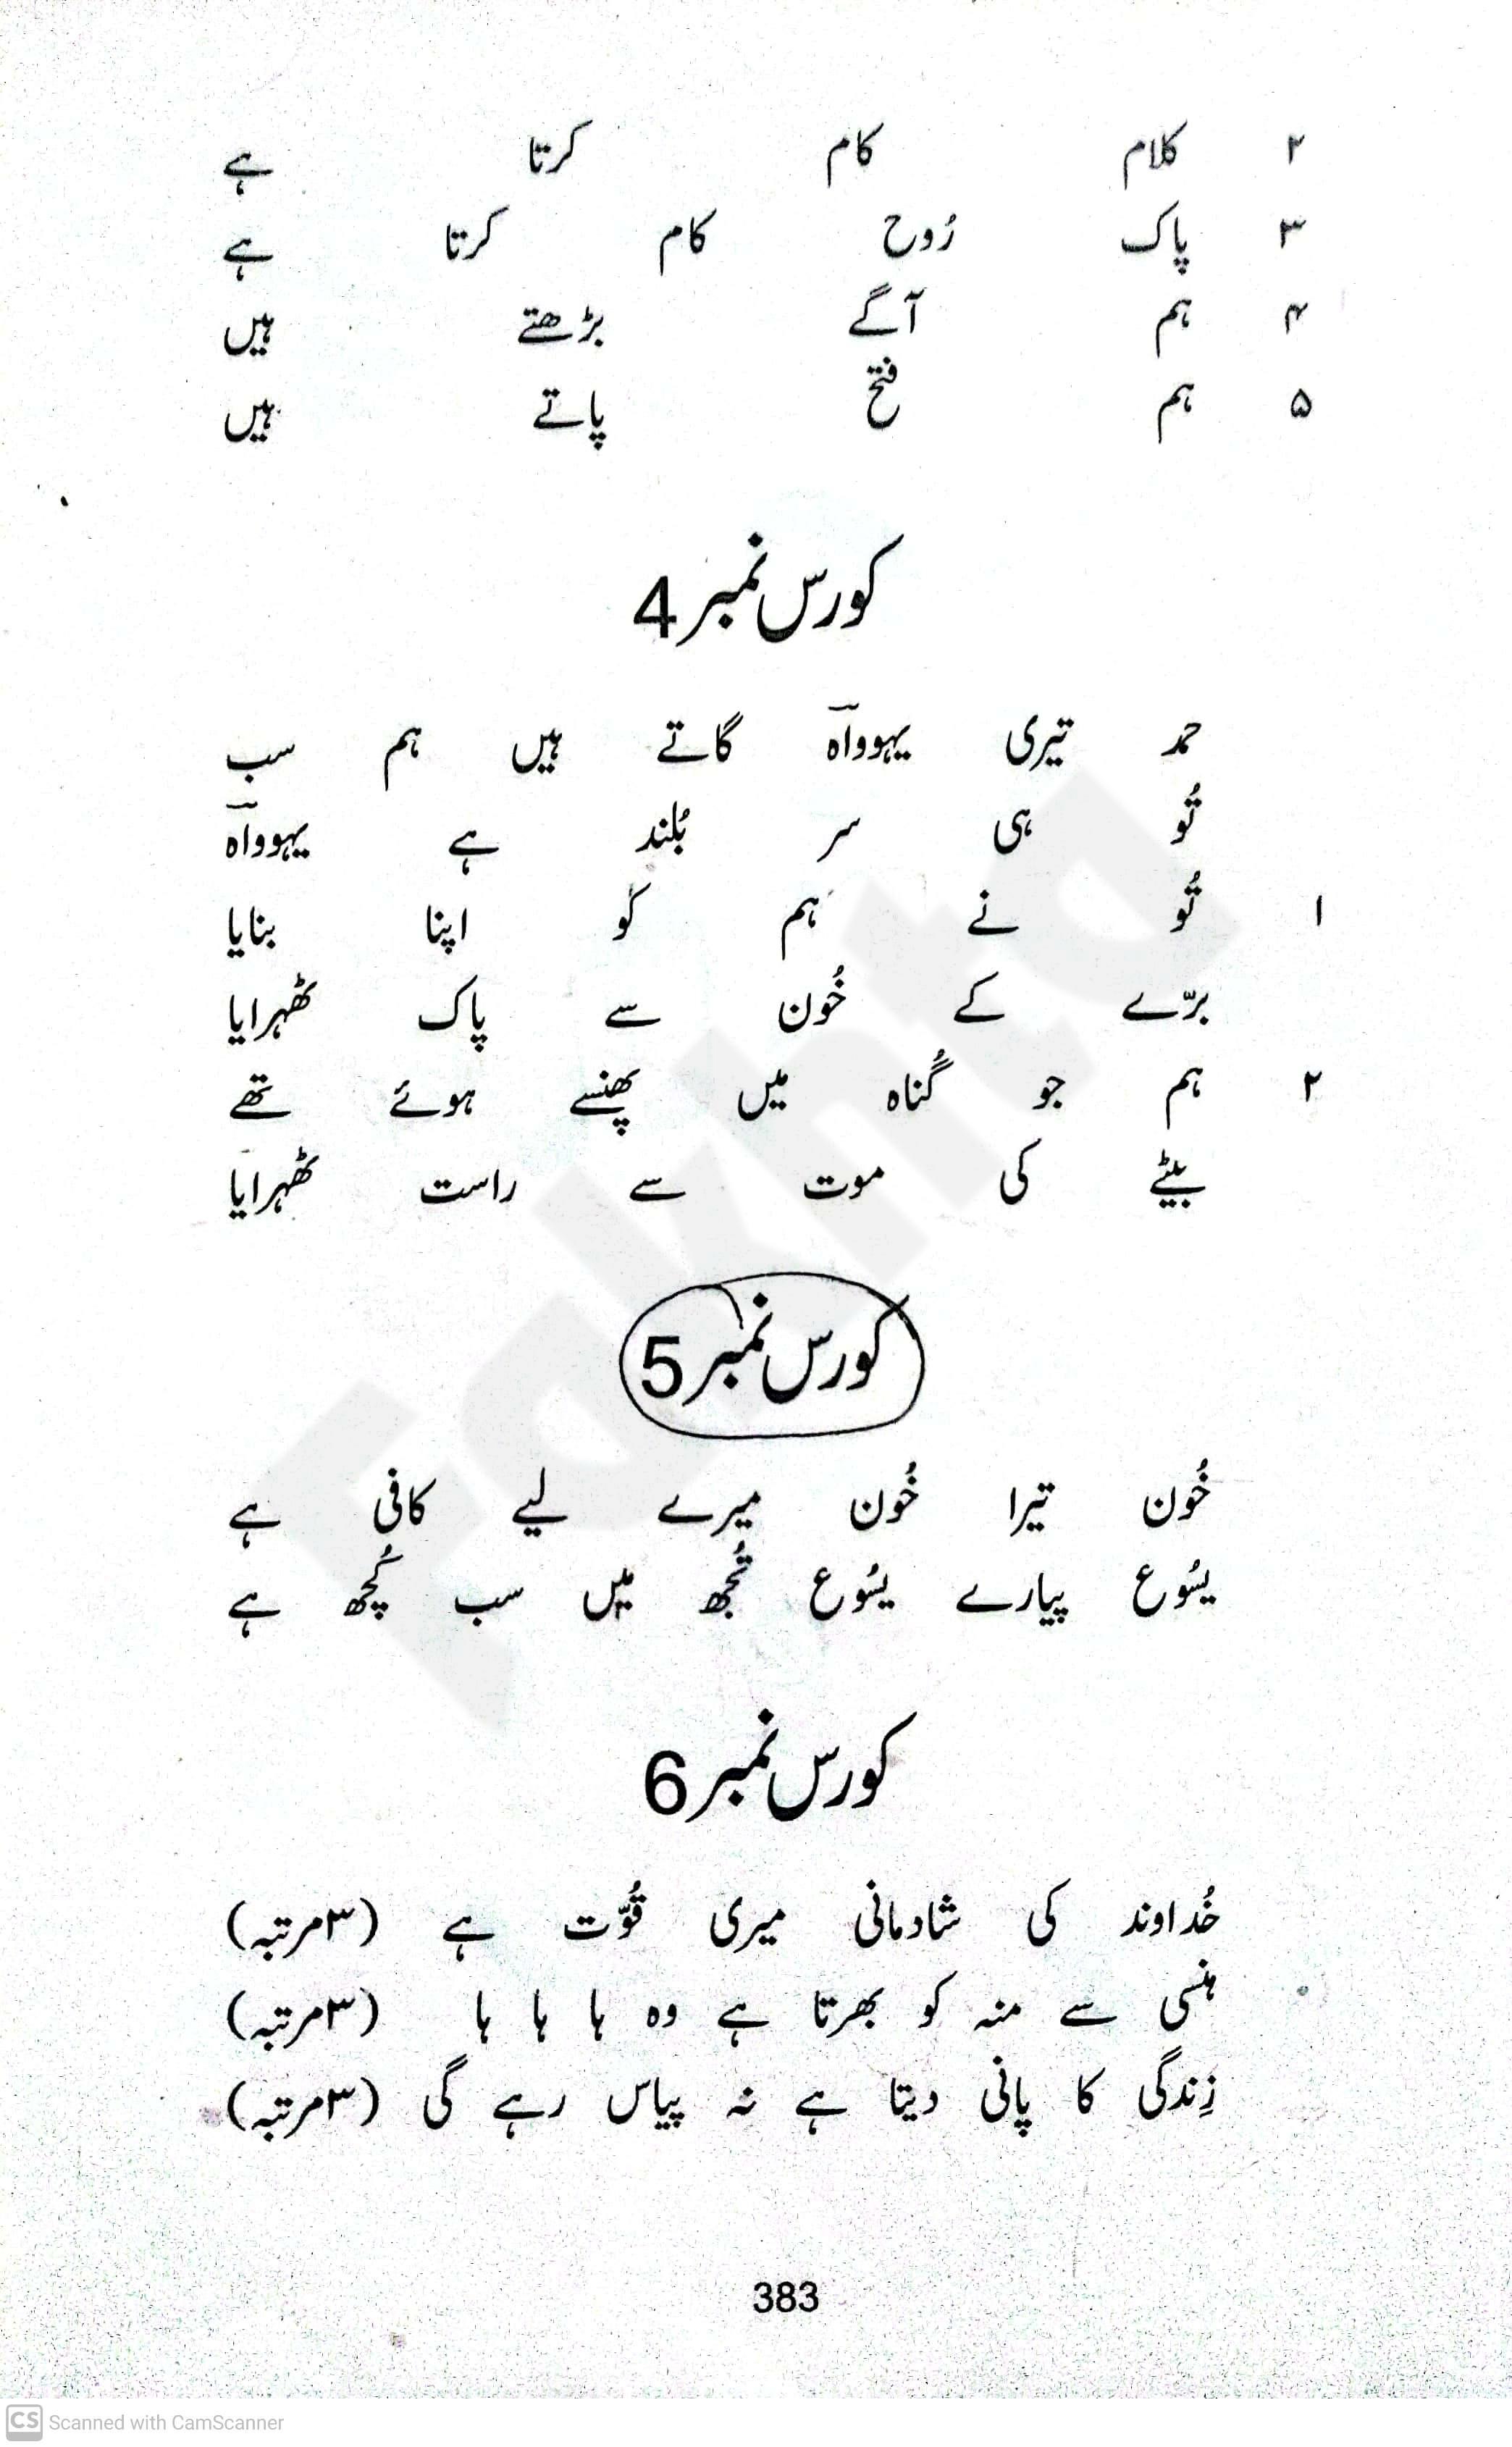 ۲ کلام کام کرتا ہے
۳ پاک رُوح کام کرتا ہے
۴ ہم آگے بڑھتے ہیں
۵ ہم فتح پاتے ہیں
کورس نمبر 4
حمد تیری یہوواہ گاتے ہیں ہم سب
تُو ہی سر بُلند ہے یہوواہ
۱ تُو نے ہم کو اپنا بنایا
برّے کے خُون سے پاک ٹھہرایا
۲ ہم جو گُناہ میں پھنسے ہوئے تھے
بیٹے کی موت سے راست ٹھہرایا
کورس نمبر 5
خُون تیرا خُون میرے لیے کافی ہے
یسُوع پیارے یسُوع تُجھ میں سب کُچھ ہے
کورس نمبر 6
خُداوند کی شادمانی میری قُوّت ہے (۳مرتبہ)
ہنسی سے منہ کو بھرتا ہے وہ ہا ہا ہا (۳مرتبہ)
زِندگی کا پانی دیتا ہے نہ پیاس رہے گی (۳مرتبہ)
383
Fakhta
CS Scanned with CamScanner